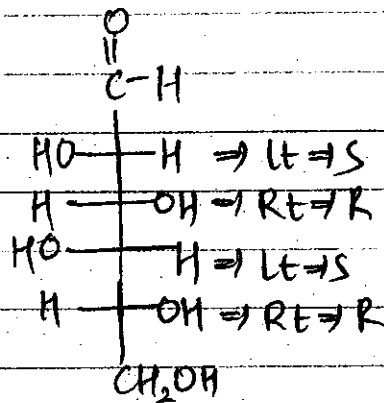 O
||
C-H
HO H ⇒ Lt ⇒ S
H OH ⇒ Rt ⇒ R
HO H ⇒ Lt ⇒ S
H OH ⇒ Rt ⇒ R
CH₂OH